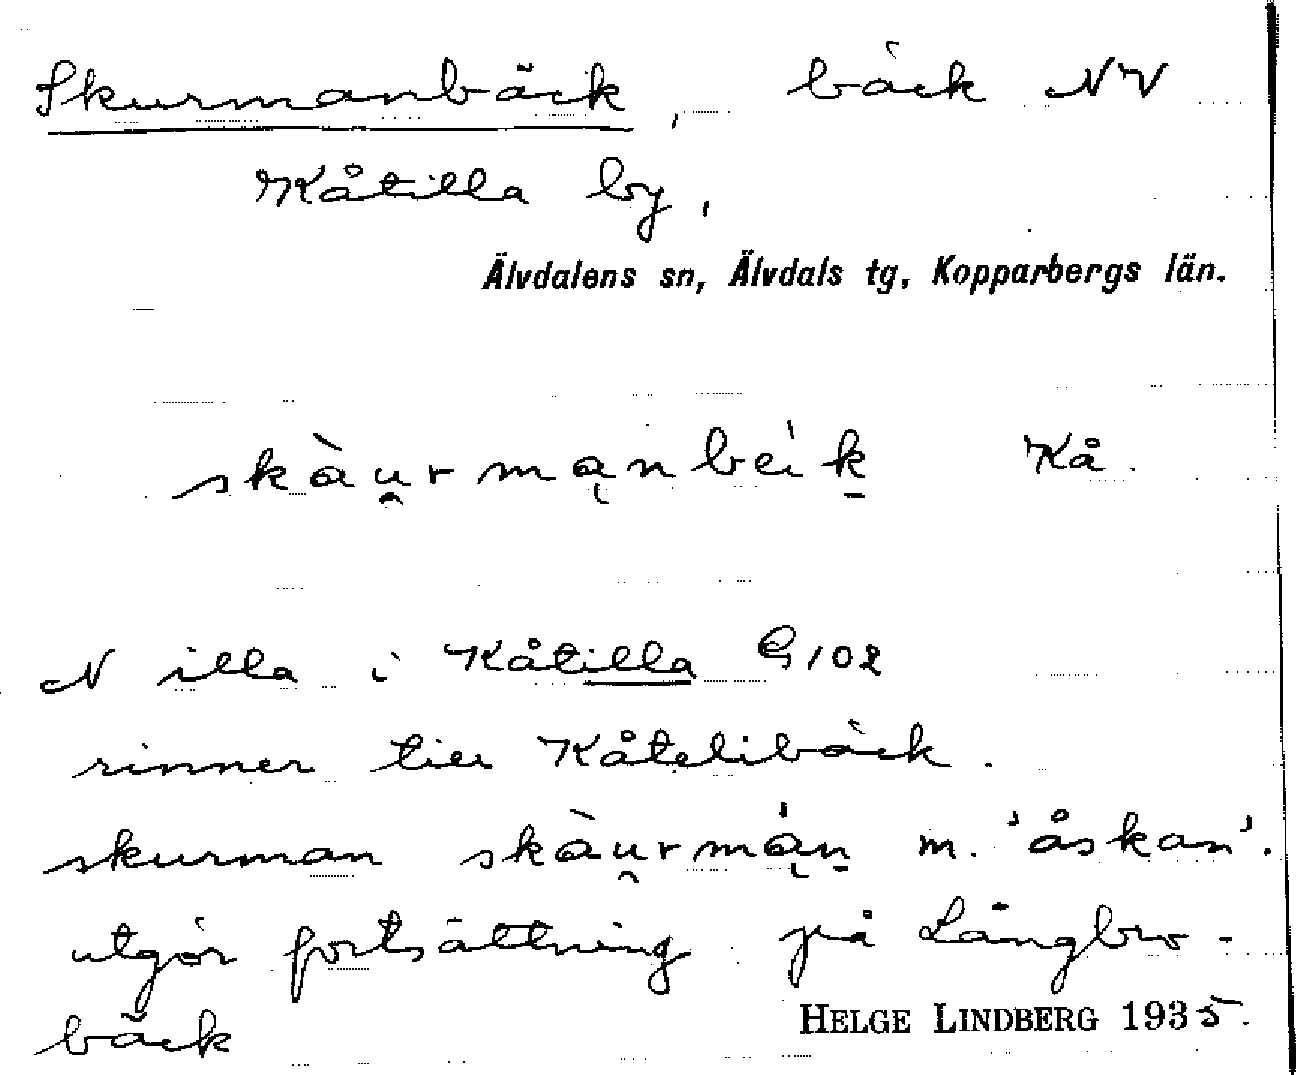 Skurmanbäck, bäck NV
Kåtilla by,
Älvdalens sn, Älvdals tg, Kopparbergs län.
skàu̯rmąnbèi̍k Kå.
N illa i Kåtilla G102
rinner till Kåtelibäck.
skurman skàu̯rmą̍n m. 'åskan'.
utgör fortsättning på Långbro-
bäck
HELGE LINDBERG 1935.